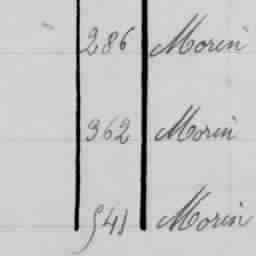 286 Morin
362 Morin
541 Morin